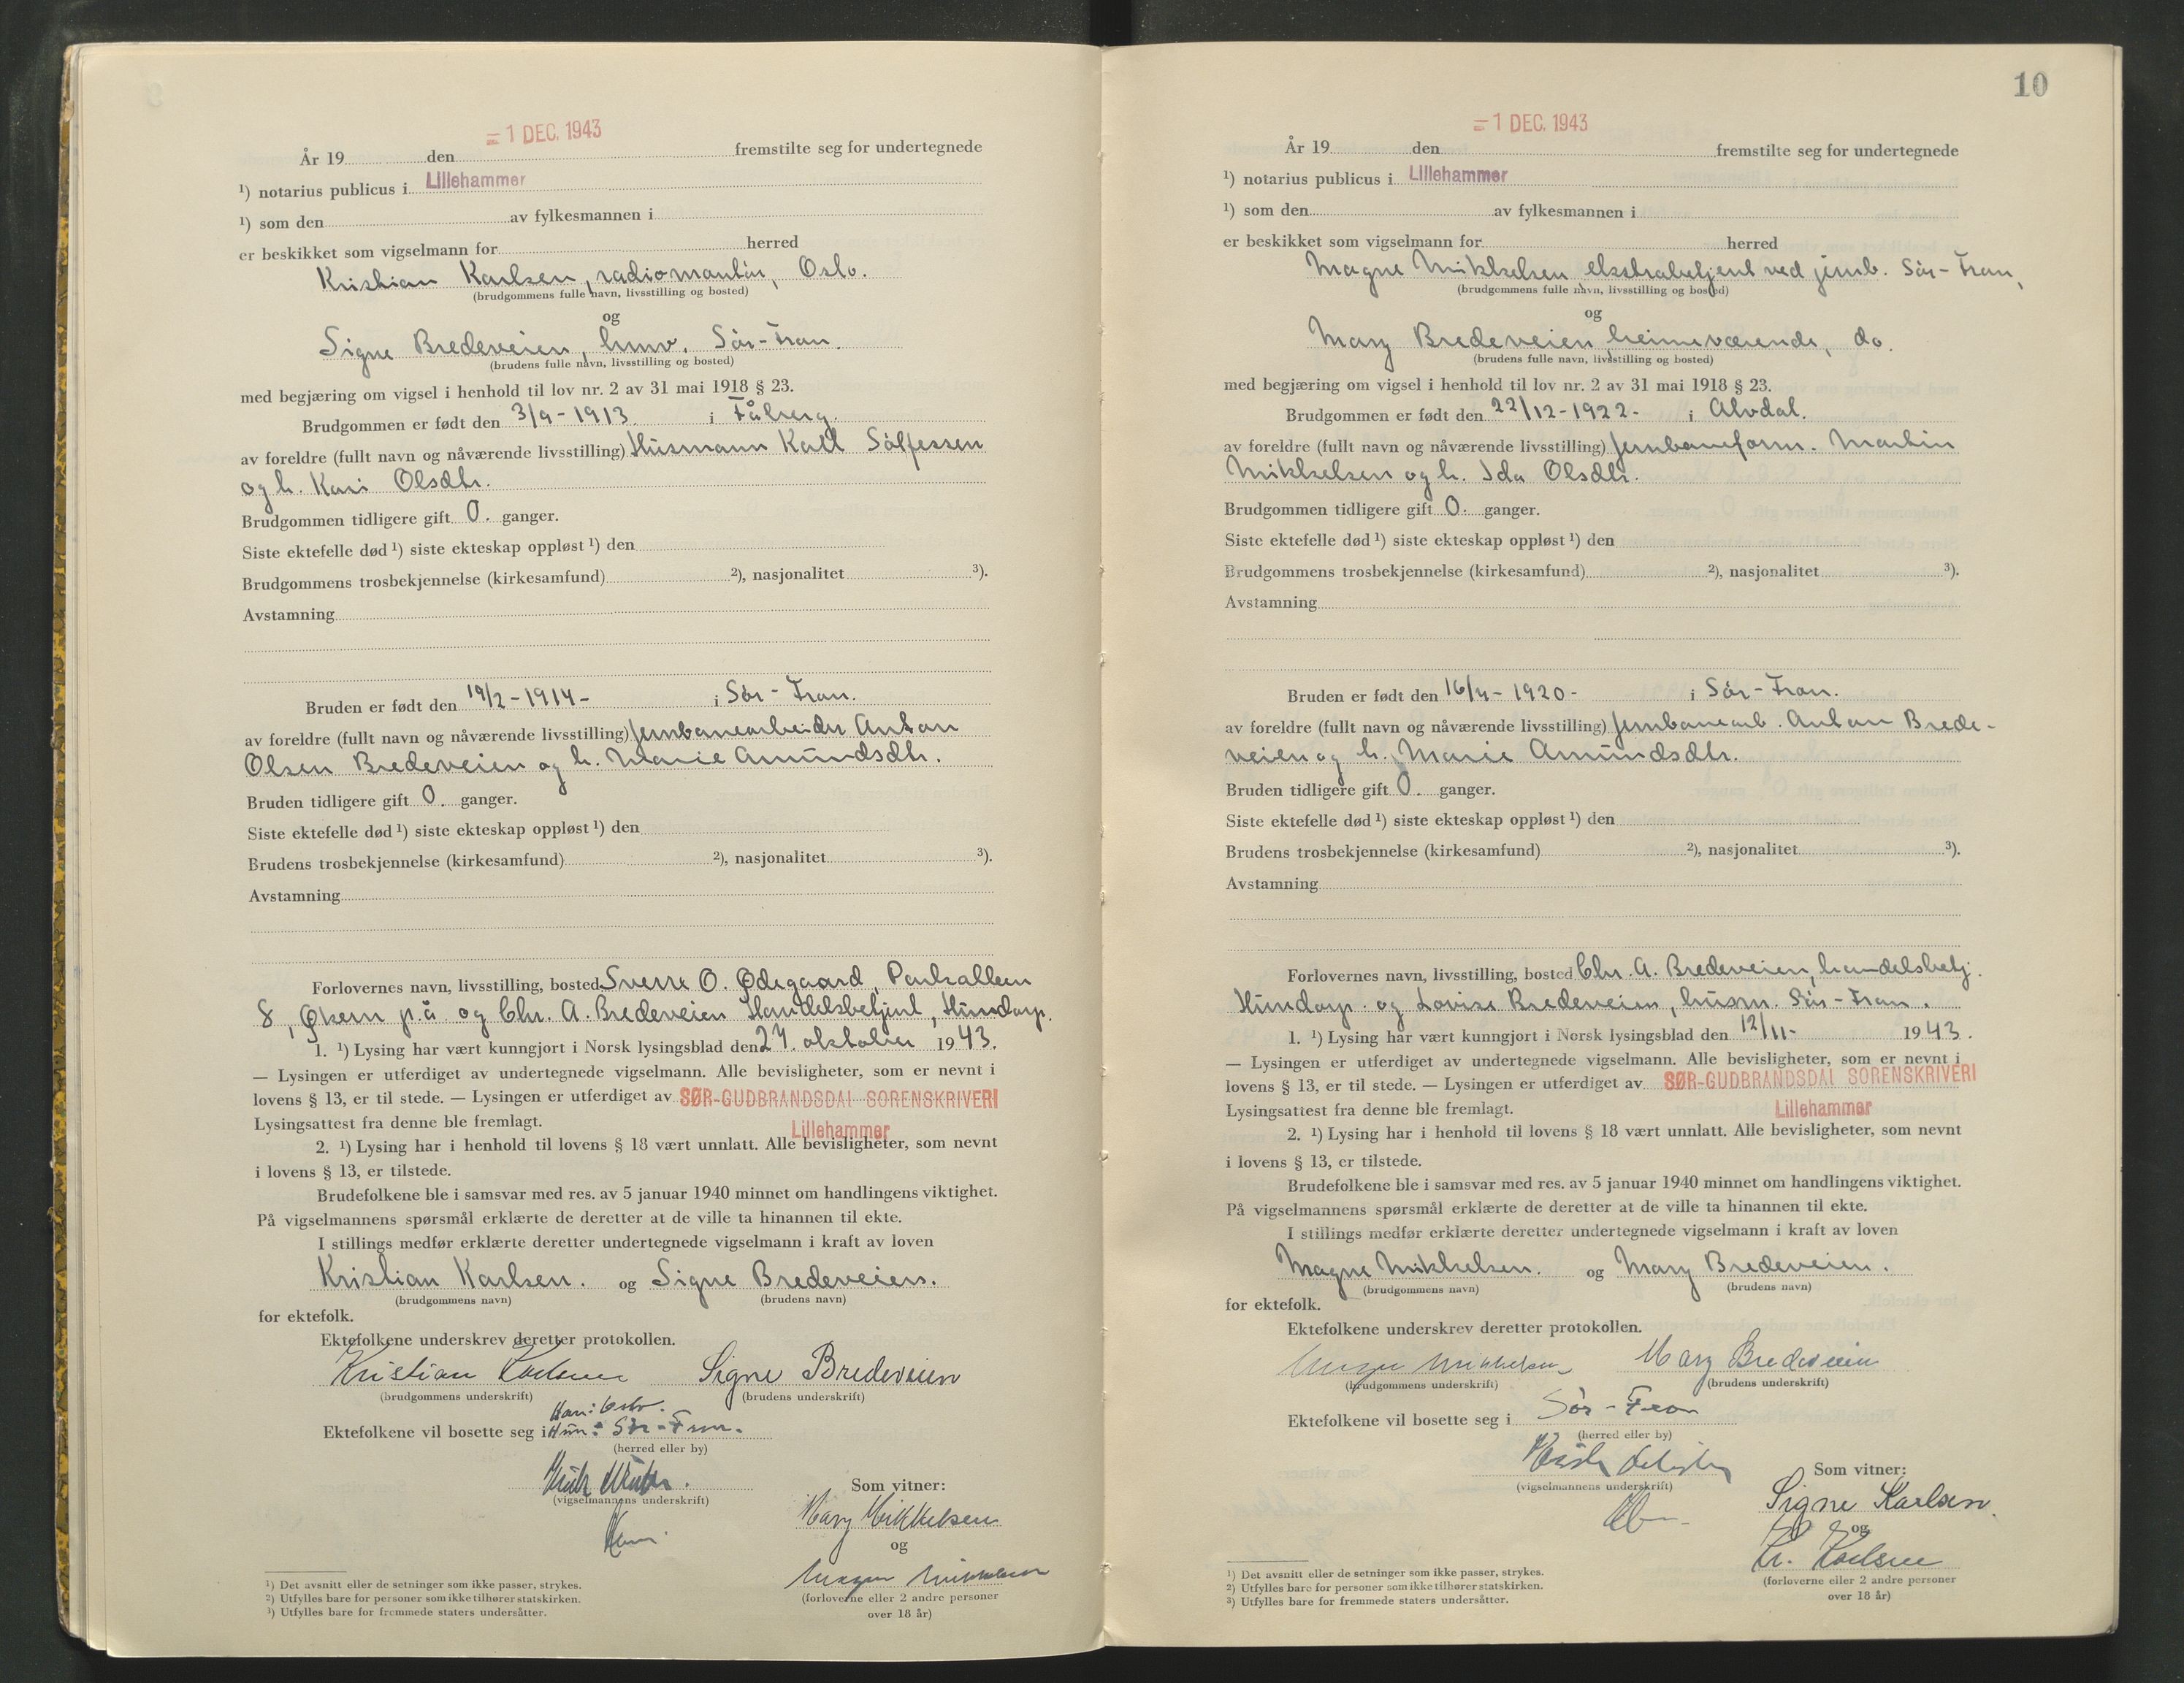 = 1 DEC. 1943
År 19 den fremstilte seg for undertegnede
¹) notarius publicus i Lillehammer
¹) som den av fylkesmannen i
er beskikket som vigselmann for herred
Kristian Karlsen, radiomontør, Oslo.
(brudgommens fulle navn, livsstilling og bosted)
og
Signe Bredeveien, hmv. Sör-Fron.
(brudens fulle navn, livsstilling og bosted)
med begjæring om vigsel i henhold til lov nr. 2 av 31 mai 1918 § 23.
Brudgommen er født den 3/9-1913. i Fåberg.
av foreldre (fullt navn og nåværende livsstilling) Husmann Kall Sölfessen
og h. Kari Olsdtr.
Brudgommen tidligere gift 0. ganger.
Siste ektefelle død ¹) siste ekteskap oppløst ¹) den
Brudgommens trosbekjennelse (kirkesamfund) ²), nasjonalitet ³).
Avstamning
Bruden er født den 19/2-1914- i Sör-Fron.
av foreldre (fullt navn og nåværende livsstilling) Jernbanearbeider Anton
Olsen Bredeveien og h. Marie Amundsdtr.
Bruden tidligere gift 0. ganger.
Siste ektefelle død ¹) siste ekteskap oppløst ¹) den
Brudens trosbekjennelse (kirkesamfund) ²), nasjonalitet ³).
Avstamning
Forlovernes navn, livsstilling, bosted Sverre O. Ødegaard, Parkalleen
8, Økern p.å. og Chr. A. Bredeveien Handelsbetjent, Hundorp.
1. ¹) Lysing har vært kunngjort i Norsk lysingsblad den 27. oktober 1943.
— Lysingen er utferdiget av undertegnede vigselmann. Alle bevisligheter, som er nevnt i
lovens § 13, er til stede. — Lysingen er utferdiget av SØR-GUDBRANDSDAL SORENSKRIVERI
Lysingsattest fra denne ble fremlagt.
Lillehammer
2. ¹) Lysing har i henhold til lovens § 18 vært unnlatt. Alle bevisligheter, som nevnt
i lovens § 13, er tilstede.
Brudefolkene ble i samsvar med res. av 5 januar 1940 minnet om handlingens viktighet.
På vigselmannens spørsmål erklærte de deretter at de ville ta hinannen til ekte.
I stillings medfør erklærte deretter undertegnede vigselmann i kraft av loven
Kristian Karlsen. og Signe Bredeveien.
(brudgommens navn) (brudens navn)
for ektefolk.
Ektefolkene underskrev deretter protokollen.
Kristian Karlsen Signe Bredeveien
(brudgommens underskrift) (brudens underskrift)
Han: Oslo.
Ektefolkene vil bosette seg i Hun: Sör-Fron.
(herred eller by)
(vigselmannens underskrift)
Som vitner:
Mary Mikkelsen
og
Magne Mikkelsen
(forloverne eller 2 andre personer
over 18 år)
¹) Det avsnitt eller de setninger som ikke passer, strykes.
²) Utfylles bare for personer som ikke tilhører statskirken.
³) Utfylles bare for fremmede staters undersåtter.
10
= 1 DEC. 1943
År 19 den fremstilte seg for undertegnede
¹) notarius publicus i Lillehammer
¹) som den av fylkesmannen i
er beskikket som vigselmann for herred
Magne Mikkelsen ekstrabetjent ved jernb. Sör-Fron,
(brudgommens fulle navn, livsstilling og bosted)
og
Mary Bredeveien, heimeværende, do.
(brudens fulle navn, livsstilling og bosted)
med begjæring om vigsel i henhold til lov nr. 2 av 31 mai 1918 § 23.
Brudgommen er født den 22/12-1922- i Alvdal.
av foreldre (fullt navn og nåværende livsstilling) Jernbaneform. Martin
Mikkelsen og h. Ida Olsdtr.
Brudgommen tidligere gift 0. ganger.
Siste ektefelle død ¹) siste ekteskap oppløst ¹) den
Brudgommens trosbekjennelse (kirkesamfund) ²), nasjonalitet ³).
Avstamning
Bruden er født den 16/4-1920- i Sör-Fron.
av foreldre (fullt navn og nåværende livsstilling) Jernbanearb. Anton Brede-
veien og h. Marie Amundsdtr.
Bruden tidligere gift 0. ganger.
Siste ektefelle død ¹) siste ekteskap oppløst ¹) den
Brudens trosbekjennelse (kirkesamfund) ²), nasjonalitet ³).
Avstamning
Forlovernes navn, livsstilling, bosted Chr. A. Bredeveien, handelsbetj.
Hundorp. og Lovise Bredeveien, husm. Sör-Fron.
1. ¹) Lysing har vært kunngjort i Norsk lysingsblad den 12/11- 1943.
— Lysingen er utferdiget av undertegnede vigselmann. Alle bevisligheter, som er nevnt i
lovens § 13, er til stede. — Lysingen er utferdiget av SØR-GUDBRANDSDAL SORENSKRIVERI
Lysingsattest fra denne ble fremlagt. Lillehammer
2. ¹) Lysing har i henhold til lovens § 18 vært unnlatt. Alle bevisligheter, som nevnt
i lovens § 13, er tilstede.
Brudefolkene ble i samsvar med res. av 5 januar 1940 minnet om handlingens viktighet.
På vigselmannens spørsmål erklærte de deretter at de ville ta hinannen til ekte.
I stillings medfør erklærte deretter undertegnede vigselmann i kraft av loven
Magne Mikkelsen. og Mary Bredeveien.
(brudgommens navn) (brudens navn)
for ektefolk.
Ektefolkene underskrev deretter protokollen.
Magne Mikkelsen Mary Bredeveien
(brudgommens underskrift) (brudens underskrift)
Ektefolkene vil bosette seg i Sör-Fron
(herred eller by)
(vigselmannens underskrift)
Som vitner:
Signe Karlsen.
og
Kr. Karlsen
(forloverne eller 2 andre personer
over 18 år)
¹) Det avsnitt eller de setninger som ikke passer, strykes.
²) Utfylles bare for personer som ikke tilhører statskirken.
³) Utfylles bare for fremmede staters undersåtter.